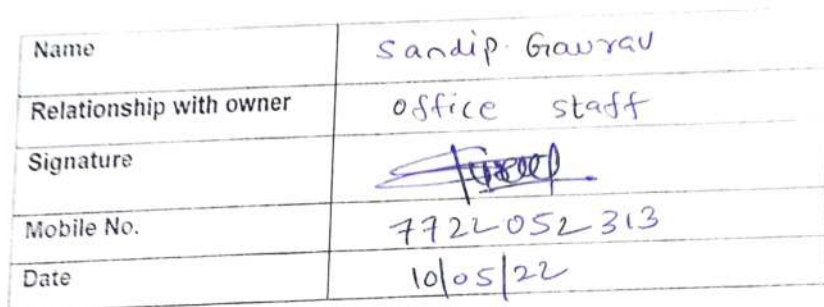 Name Sandip. Gaurav
Relationship with owner office staff
Signature
Mobile No. 7722052313
Date 10/05/22